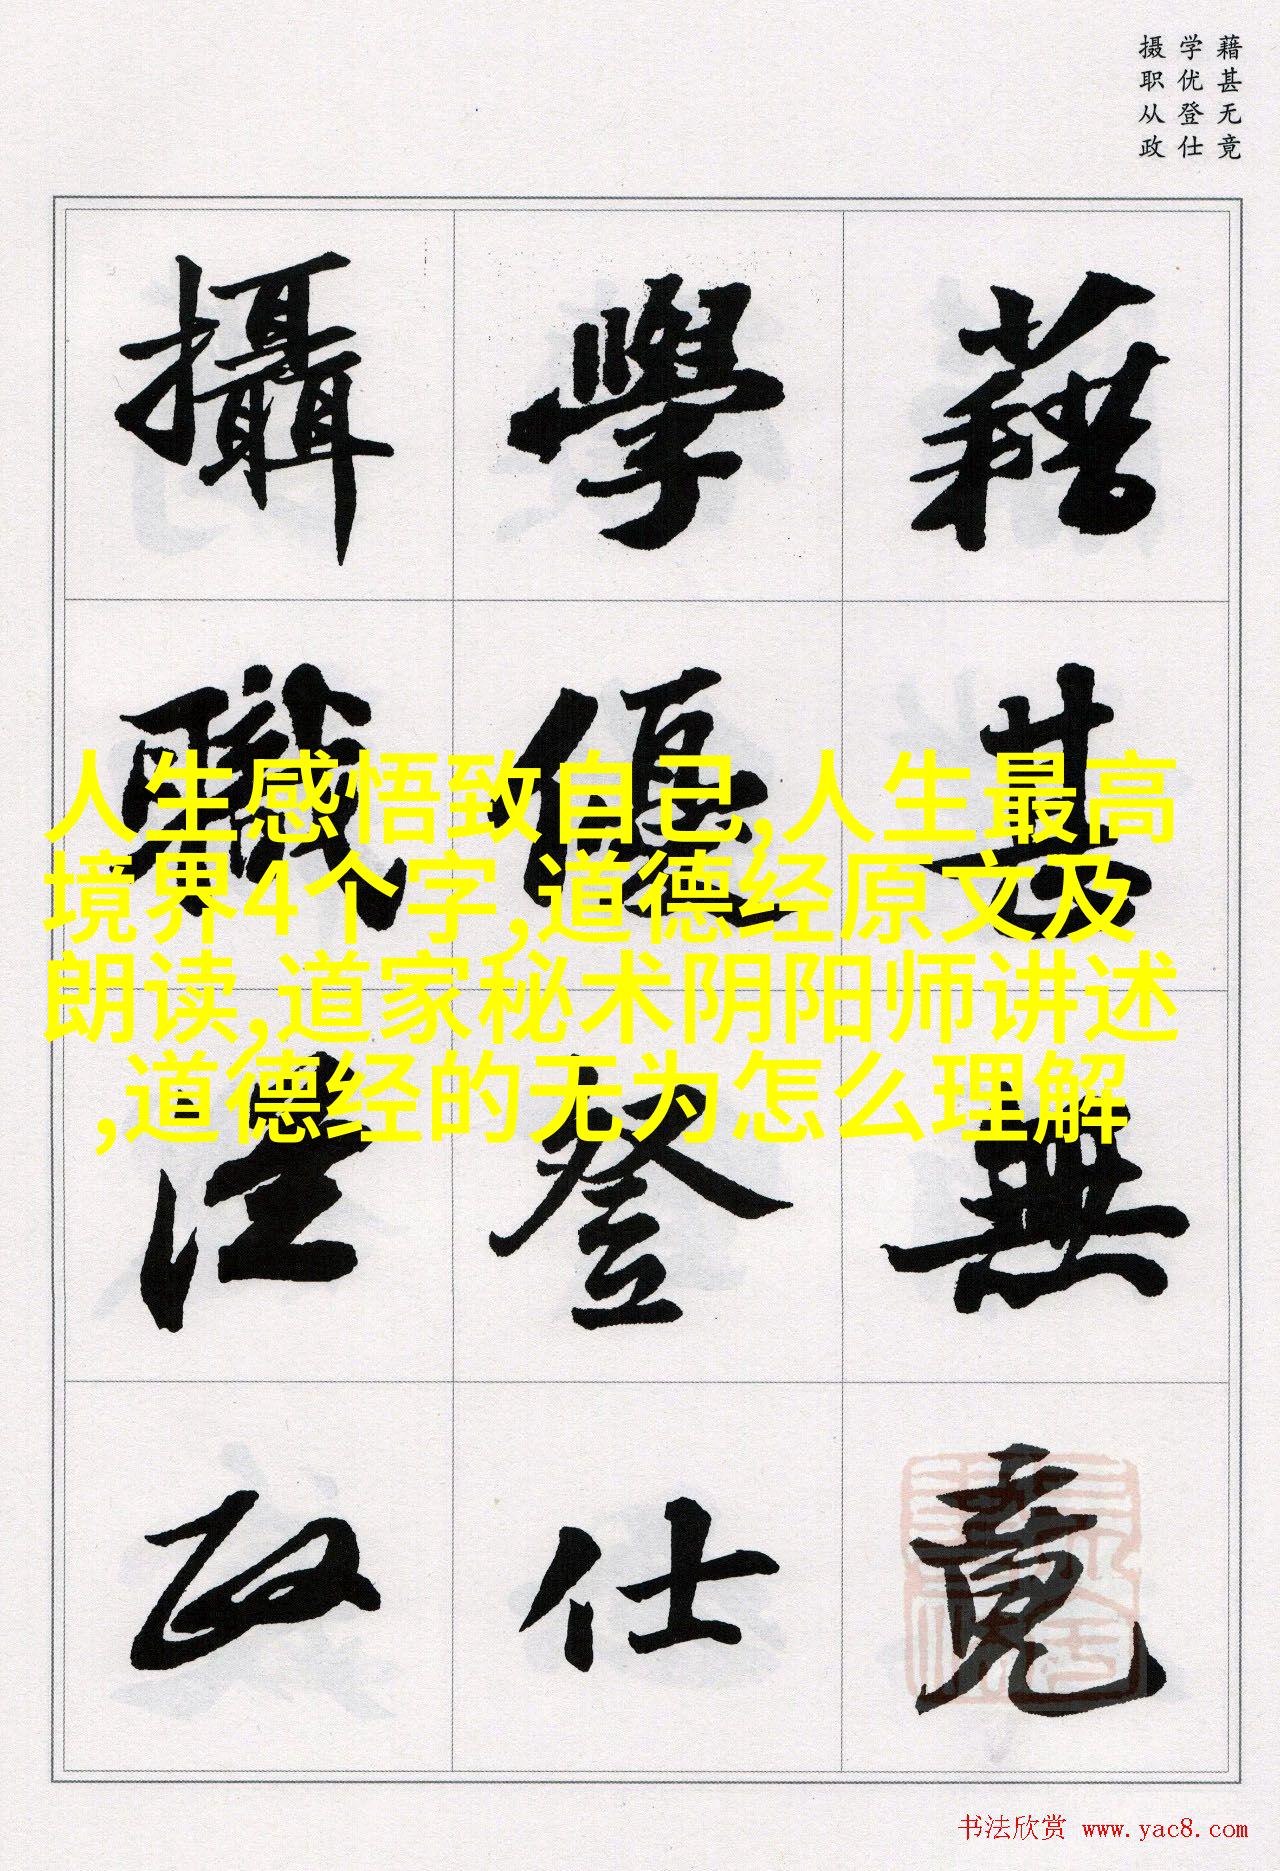 藉甚无竟
学优登仕
摄职从政
藉甚無竟
學優登仕
攝職從政
人生感悟致自己,人生最高
境界4个字,道德经原文及
朗读,道家秘术阴阳师讲述
,道德经的无为怎么理解
书法欣赏 www.yac8.com